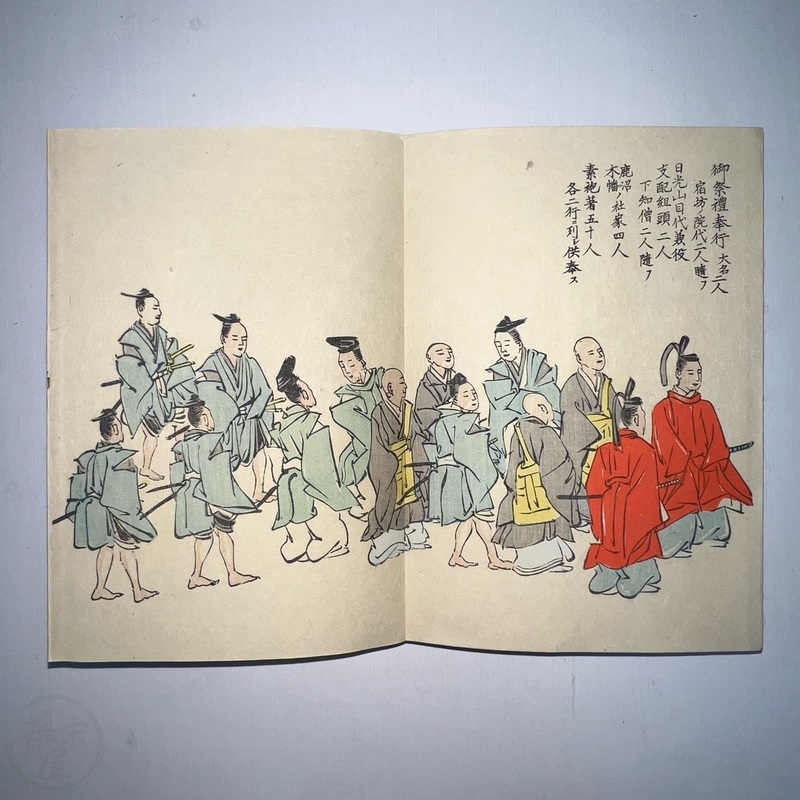 御祭禮奉行 大名二人
宿坊ノ院代二人隨フ
日光山目代義役
支配組頭二人
下知僧二人隨フ
鹿沼
木幡ノ社家四人
素袍著五十人
各二行ニ列シ供奉ス